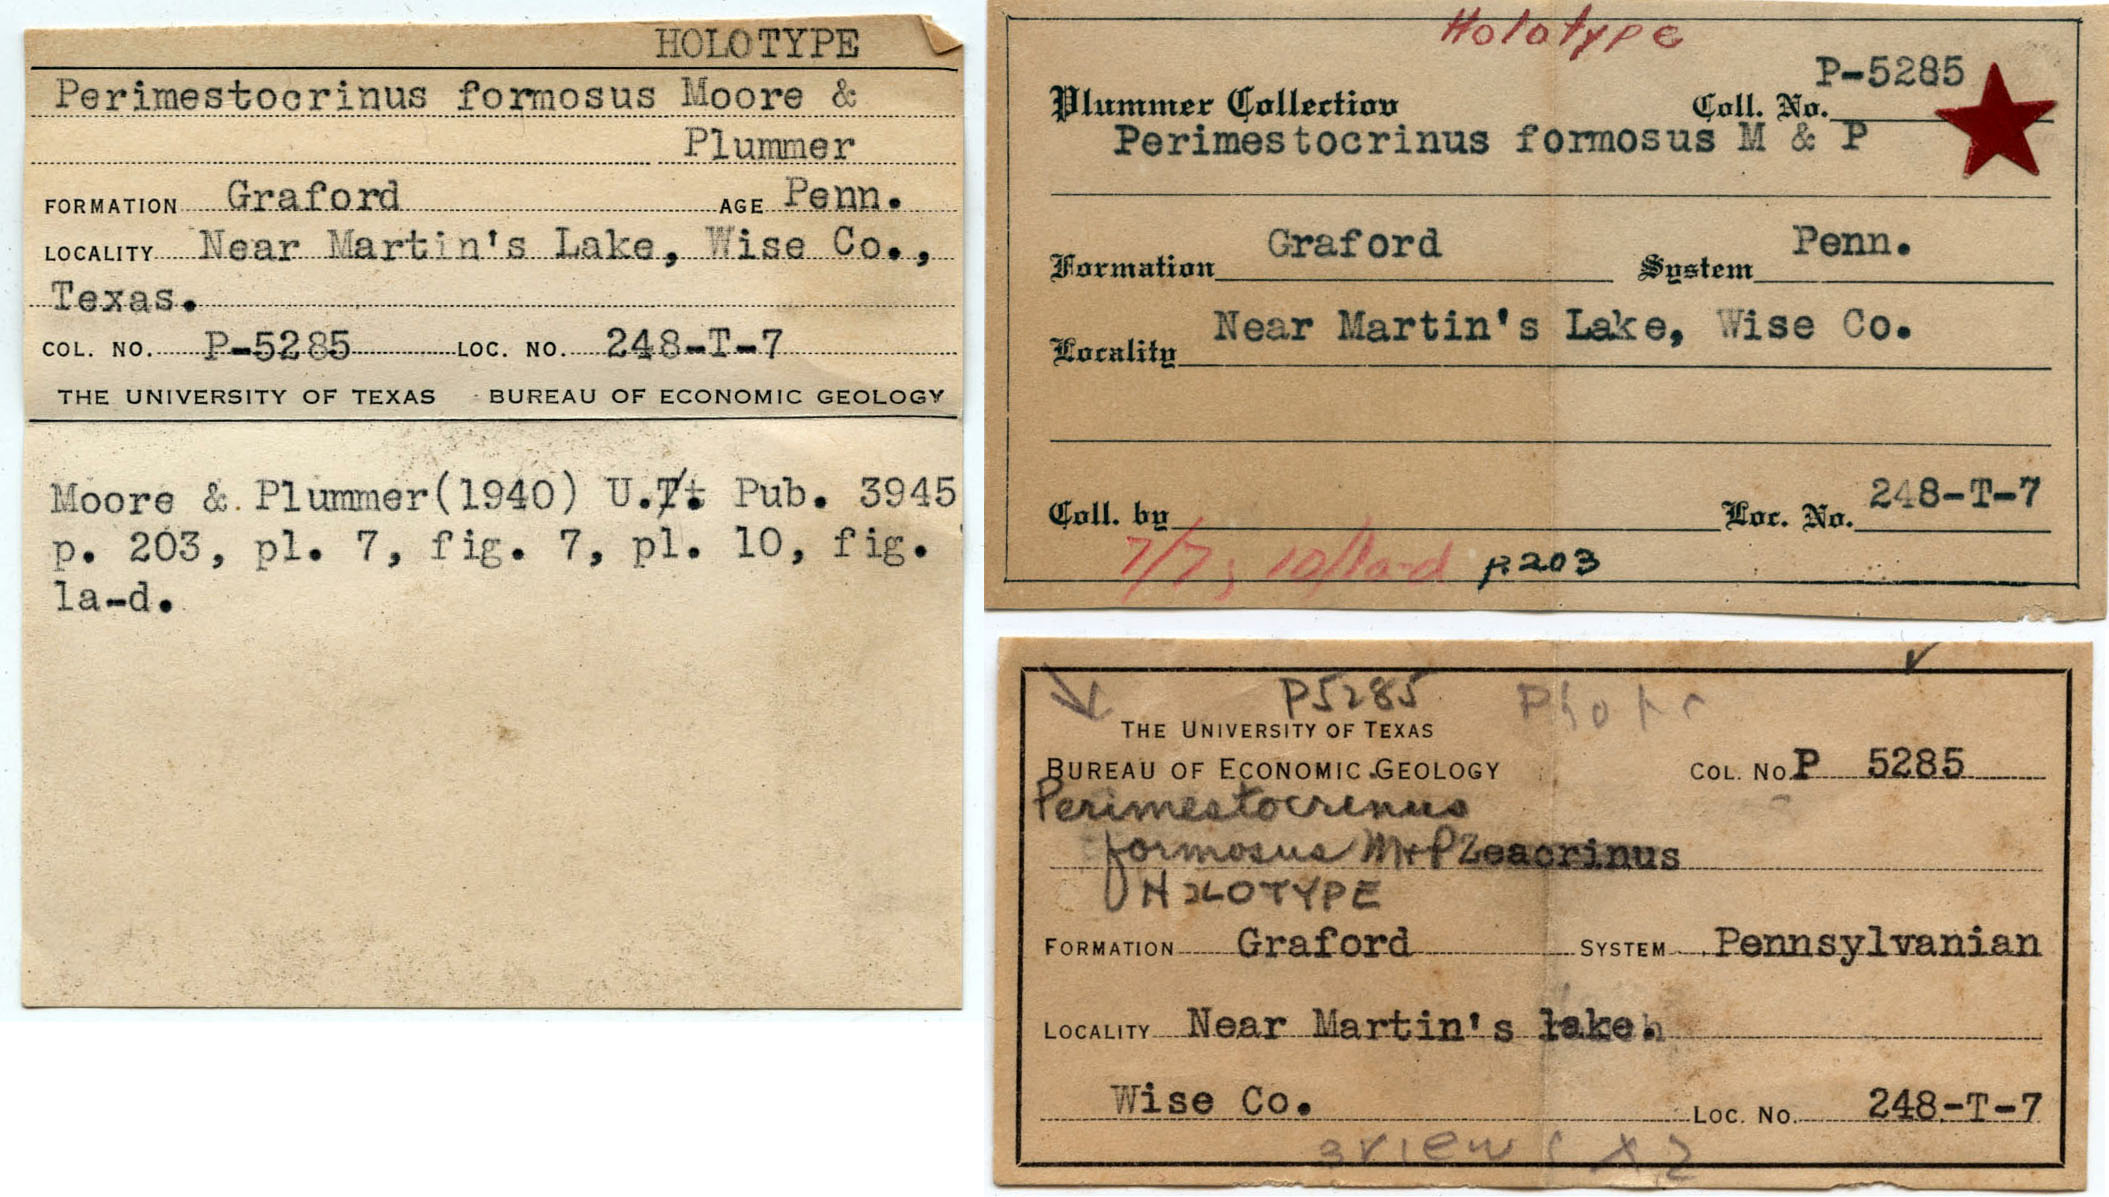 HOLOTYPE
Perimestocrinus formosus Moore &
Plummer
FORMATION Graford AGE Penn.
LOCALITY Near Martin's Lake, Wise Co.,
Texas.
COL. NO. P-5285 LOC. NO. 248-T-7
THE UNIVERSITY OF TEXAS BUREAU OF ECONOMIC GEOLOGY
Moore & Plummer(1940) U.T. Pub. 3945
p. 203, pl. 7, fig. 7, pl. 10, fig.
1a-d.
Holotype
P-5285
Plummer Collection Coll. No.
Perimestocrinus formosus M & P
Formation Graford System Penn.
Locality Near Martin's Lake, Wise Co.
Coll. by Loc. No. 248-T-7
7/7, 10/1a-d p.203
P5285 Photo
THE UNIVERSITY OF TEXAS
BUREAU OF ECONOMIC GEOLOGY COL. NO. P 5285
Perimestocrinus
formosus M+P Zeacrinus
HOLOTYPE
FORMATION Graford SYSTEM Pennsylvanian
LOCALITY Near Martin's lake.
Wise Co. LOC. NO. 248-T-7
3 views X2